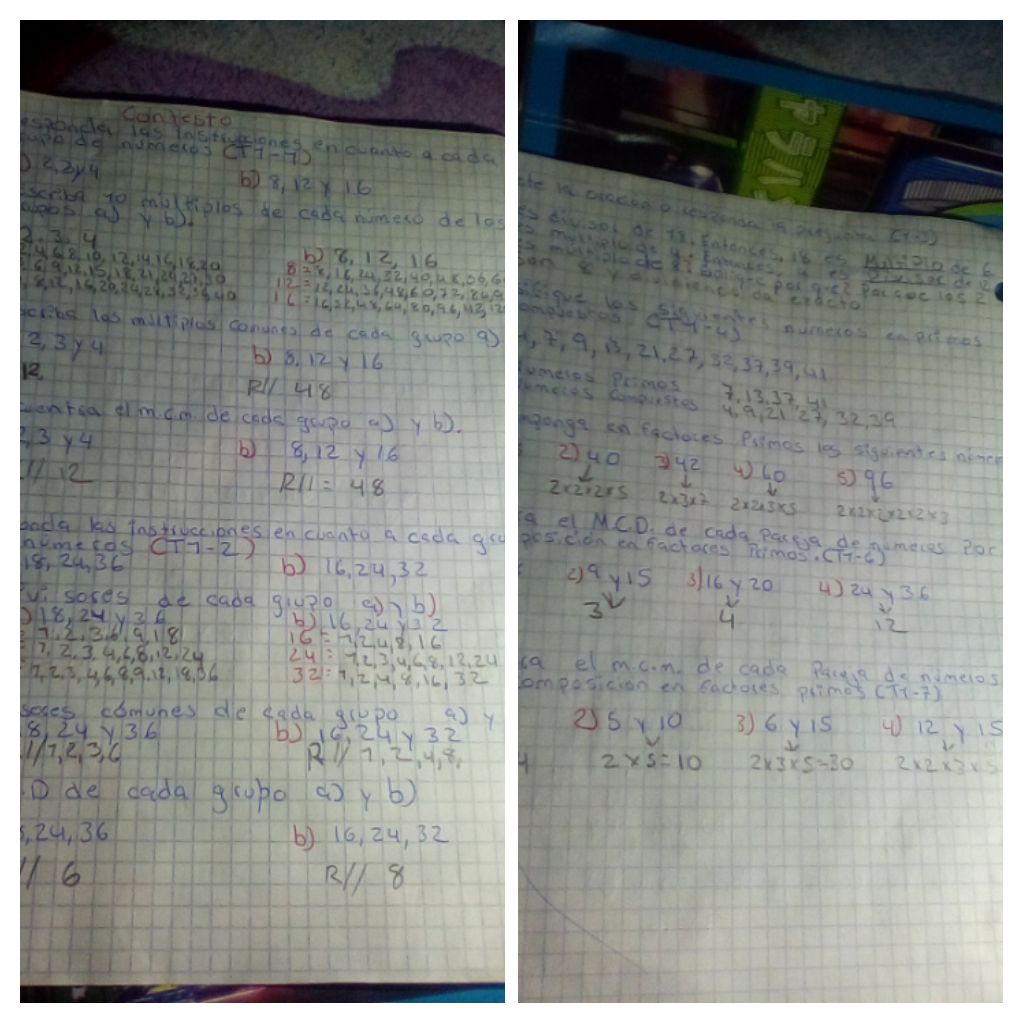 Contesto
esponda las instrucciones en cuanto a cada
upo de numeros (T1-1)
) 2, 3 y 4 b) 8, 12 y 16
scriba 10 múltiplos de cada número de los
upos a) y b).
2, 3, 4 b) 8, 12, 16
4,6,8,10,12,14,16,18,20 8=8,16,24,32,40,48,56,6
6,9,12,15,18,21,24,27,30 12=12,24,36,48,60,72,84,9
8,12,16,20,24,28,32,36,40 16=16,32,48,64,80,96,112,12
scriba los múltiplos comunes de cada grupo a)
2, 3 y 4 b) 8, 12 y 16
12 R// 48
uentra el m.c.m. de cada grupo a) y b).
, 3 y 4 b) 8, 12 y 16
// 12 R// = 48
onda las instrucciones en cuanto a cada gru
números (T1-2)
18, 24, 36 b) 16, 24, 32
vi sores de cada grupo a) y b)
) 18, 24 y 36 b) 16, 24 y 32
= 1, 2, 3, 6, 9, 18 16 = 1, 2, 4, 8, 16
= 1, 2, 3, 4, 6, 8, 12, 24 24 = 1, 2, 3, 4, 6, 8, 12, 24
1, 2, 3, 4, 6, 8, 9, 12, 18, 36 32 = 1, 2, 4, 8, 16, 32
sores comunes de cada grupo a) y
8, 24 y 36 b) 16, 24 y 32
// 1, 2, 3, 6 R// 1, 2, 4, 8,
.D de cada grupo a) y b)
, 24, 36 b) 16, 24, 32
// 6 R// 8
te la oración o responda la pregunta (T1-3)
es divisor de 18. Entonces, 18 es Multiplo de 6
es multiplo de 4. Entonces, 4 es Divisor de 12
es multiplo de 8? por que? Porque los 2
son 8 y dividiendo da exacto
ifique los siguientes numeros en primos
ompuestos (T1-4)
4, 7, 9, 13, 21, 27, 32, 37, 39, 41
números Primos 7, 13, 37, 41
números Compuestos 4, 9, 21, 27, 32, 39
mponga en factores Primos los siguientes núme
2) 40 3) 42 4) 60 5) 96
2x2x2x5 2x3x7 2x2x3x5 2x2x2x2x2x3
a el M.C.D. de cada Pareja de números Por
posición en factores Primos. (T1-6)
2) 9 y 15 3) 16 y 20 4) 24 y 36
3 4 12
ca el m.c.m. de cada Pareja de números
omposición en factores primos (T1-7)
2) 5 y 10 3) 6 y 15 4) 12 y 15
2x5=10 2x3x5=30 2x2x3x5